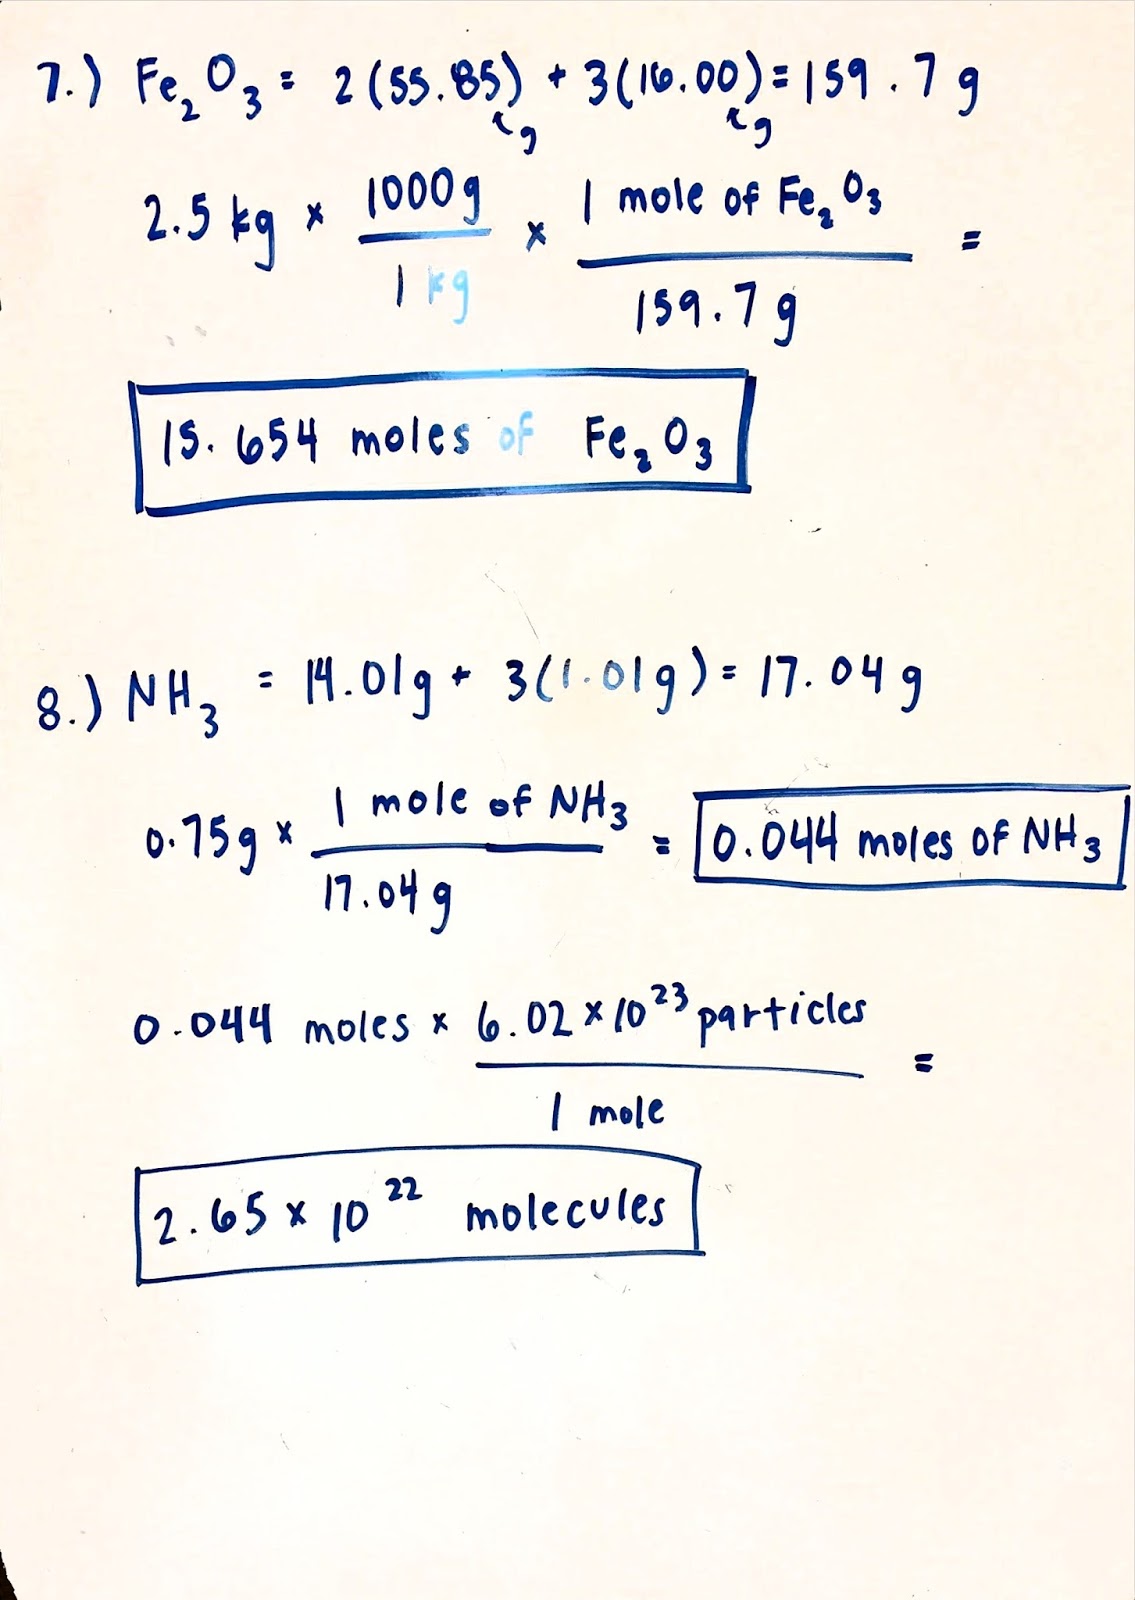 7.) Fe₂O₃ = 2(55.85) + 3(16.00) = 159.7 g
g g
2.5 kg × 1000g / 1 kg × 1 mole of Fe₂O₃ / 159.7 g =
15.654 moles of Fe₂O₃
8.) NH₃ = 14.01g + 3(1.01g) = 17.04 g
0.75g × 1 mole of NH₃ / 17.04 g = 0.044 moles of NH₃
0.044 moles × 6.02 × 10²³ particles / 1 mole =
2.65 × 10²² molecules